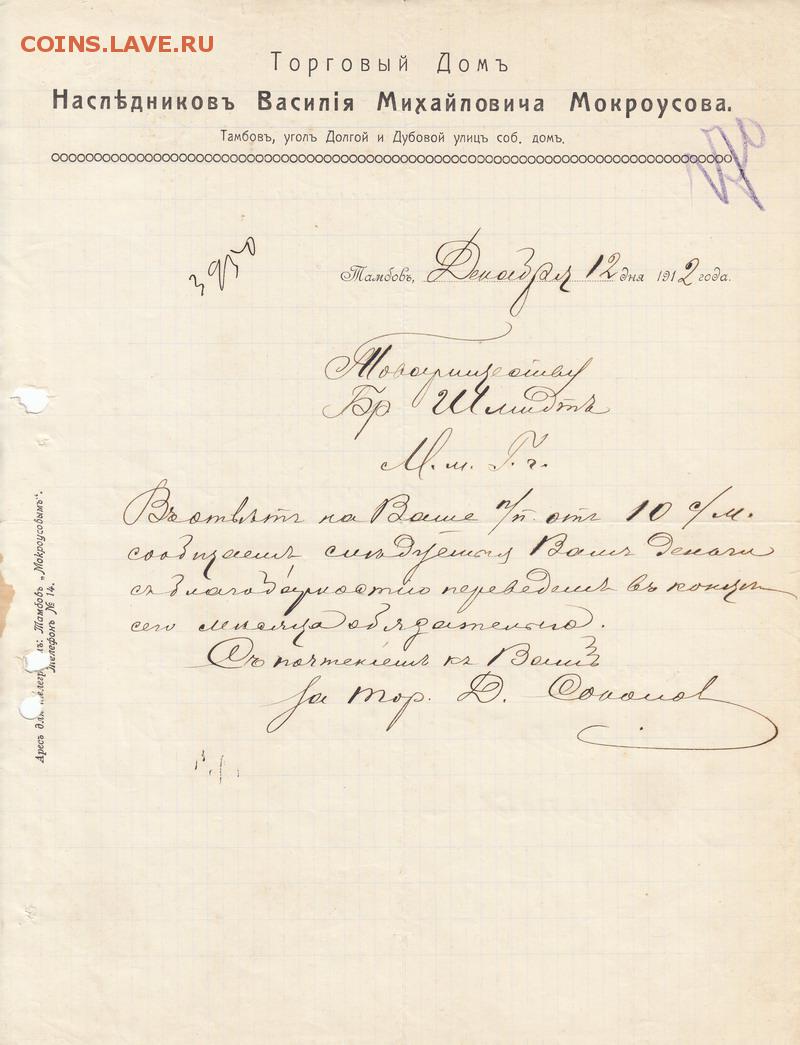 COINS.LAVE.RU
Торговый Домъ
Наслѣдниковъ Василія Михайловича Мокроусова.
Тамбовъ, уголъ Долгой и Дубовой улицъ соб. домъ.
3950
Тамбовъ, Декабря 12 дня 1912 года.
Товариществу
Бр Шмидтъ
М. м. Г. г.
Въ отвѣтъ на Ваше п/п. отъ 10 с/м.
сообщаемъ слѣдуемыя Вамъ деньги
съ благодарностію переведемъ въ концѣ
сего мѣсяца обязательно.
Съ почтеніемъ къ Вамъ
за тор. Д. Соколов
Аресъ для телеграм.: Тамбовъ „Мокроусовымъ“.
Телефонъ № 14.